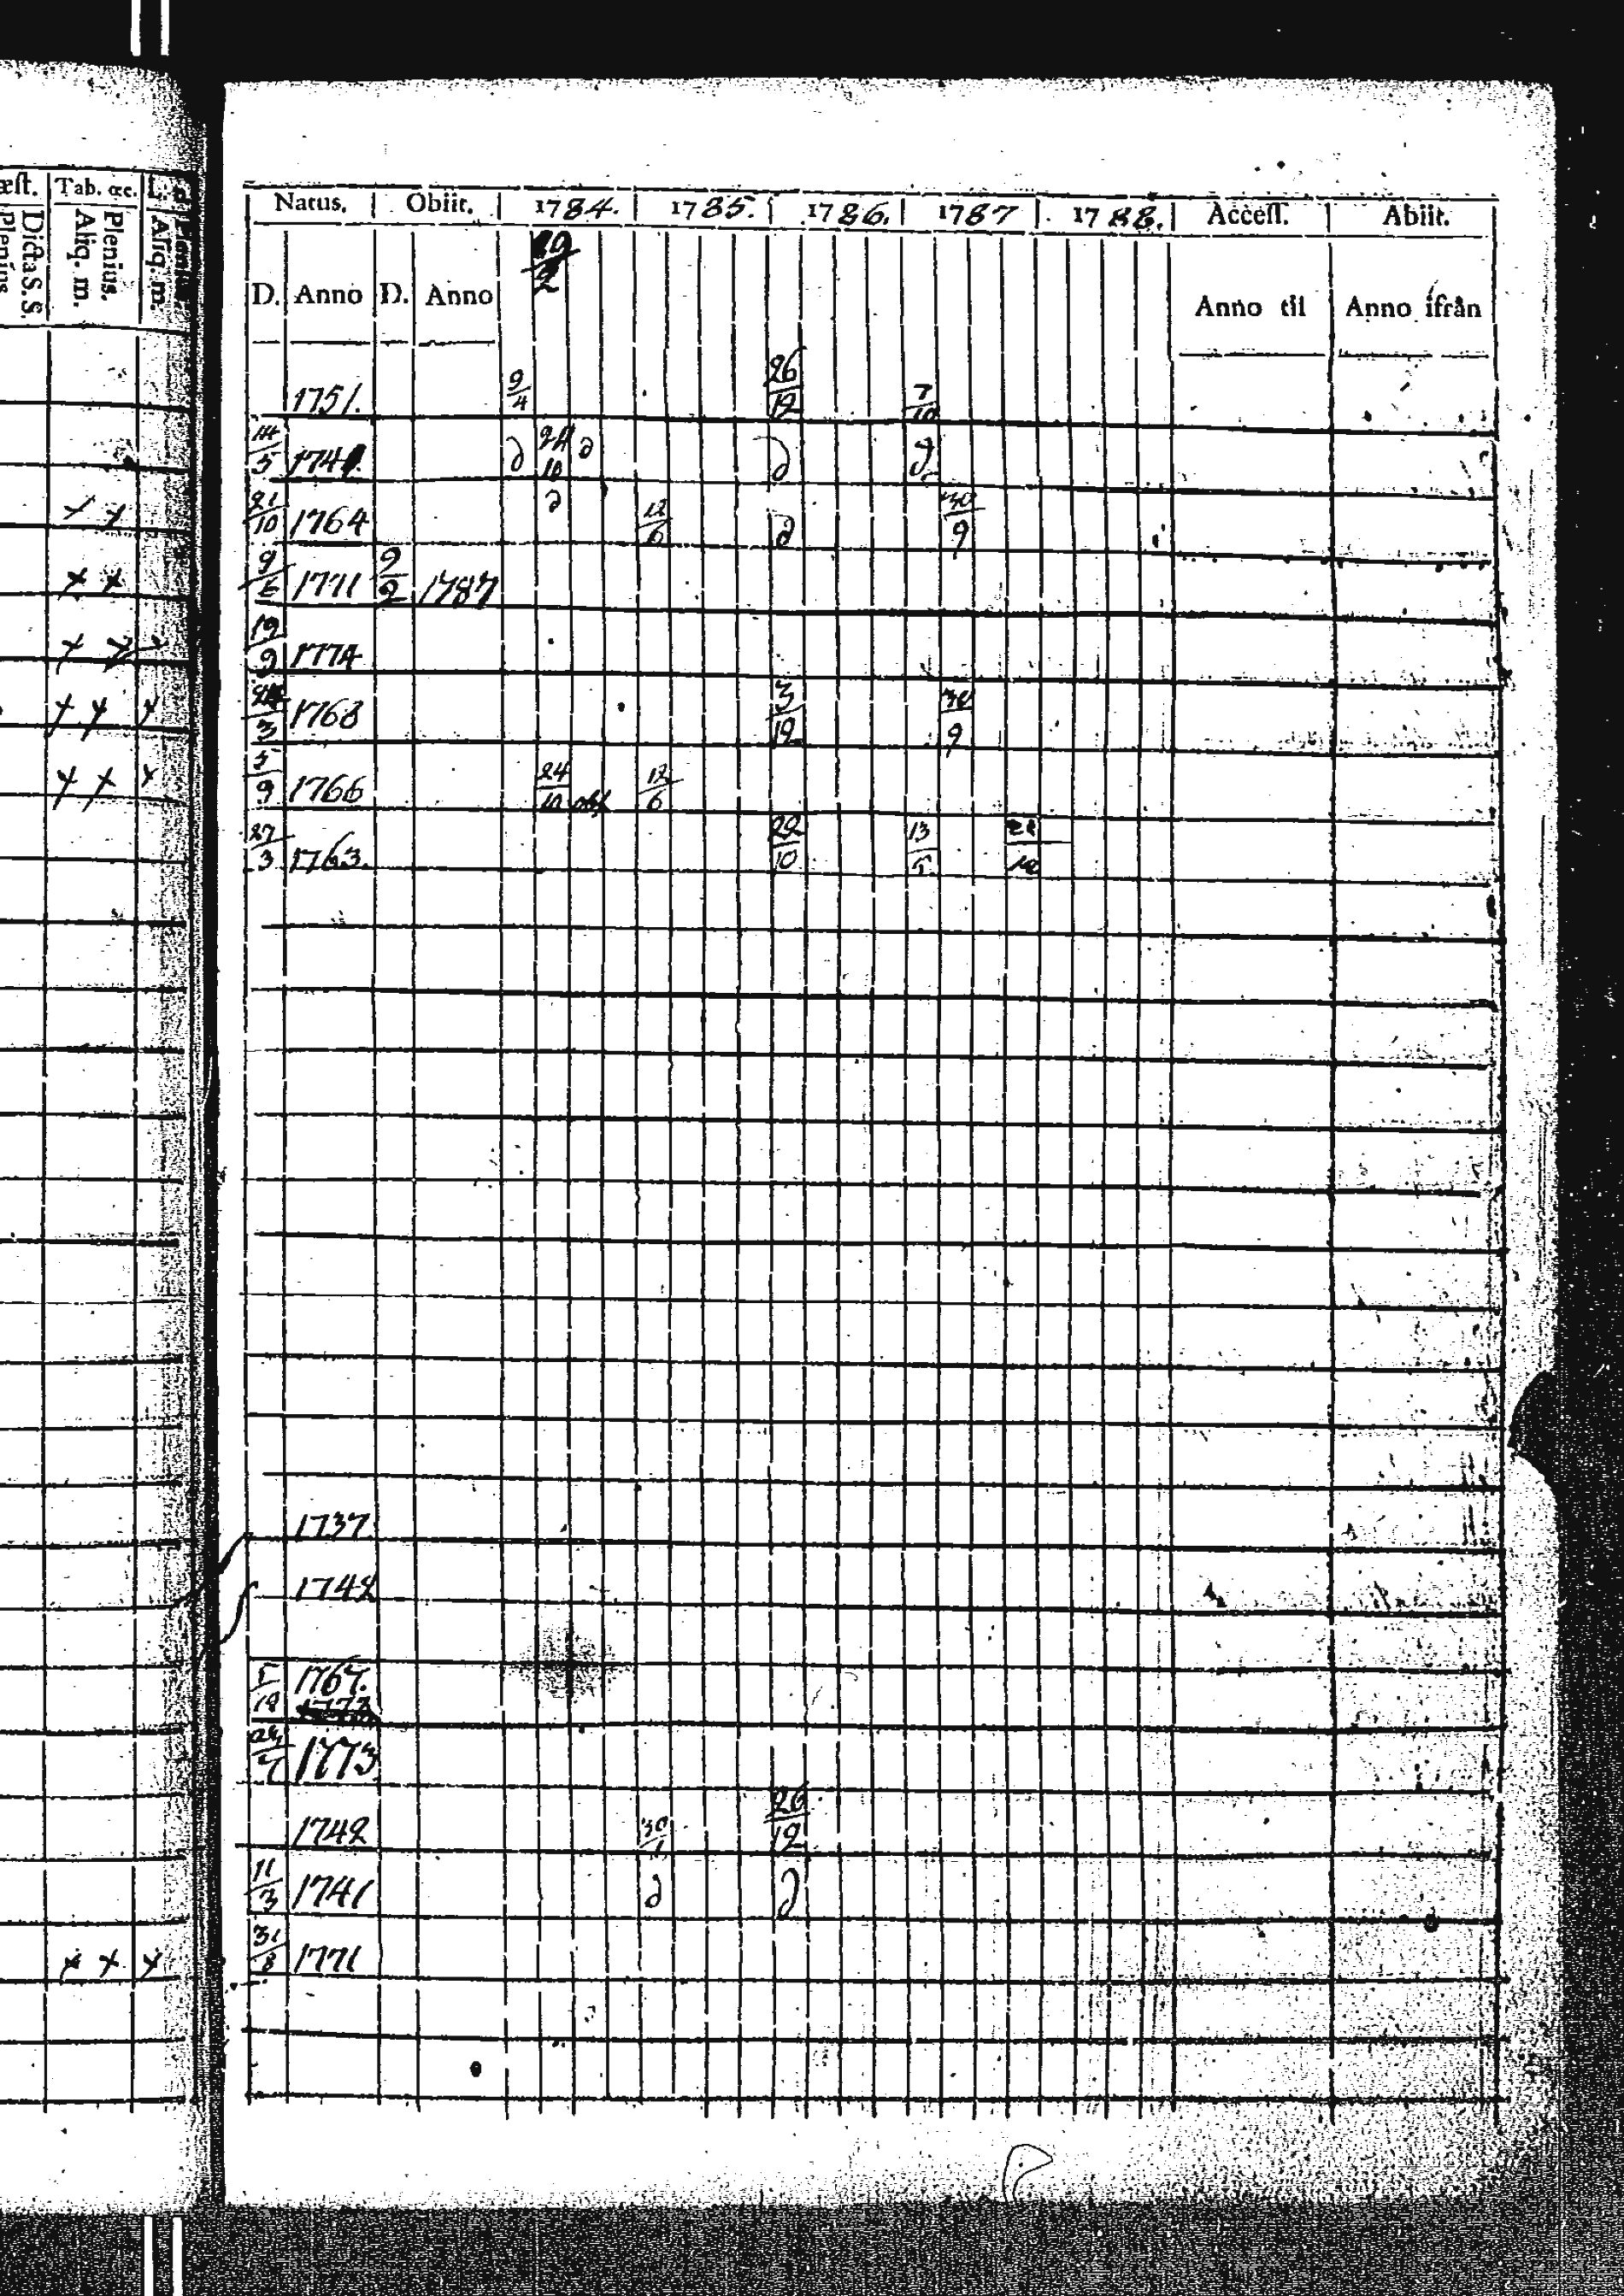 æst. Tab. œc.
Plenius Dicta S. S. Aliq. m. Plenius. Aliq. m.
Natus. Obiit. 1784. 1785. 1786. 1787 1788. Access. Abiit.
D. Anno D. Anno Anno til Anno ifrån
1751. 9/4 26/12 7/10
14/5 174 ∂ 24/10 ∂ ∂ ∂
21/10 1764 ∂ 12/6 ∂ 30/9
x x
9/6 1771 9/2 1787
x x
19/9 1774
x x x
24/3 1768 3/12 30/9
x x x
5/9 1766 24/10 obs 12/6
x x x
27/3 1763. 22/10 13/5
1737
1742
5/12 1767.
1773
1773
1742 30/1 26/12
11/3 1741 ∂ ∂
31/8 1771
x x x